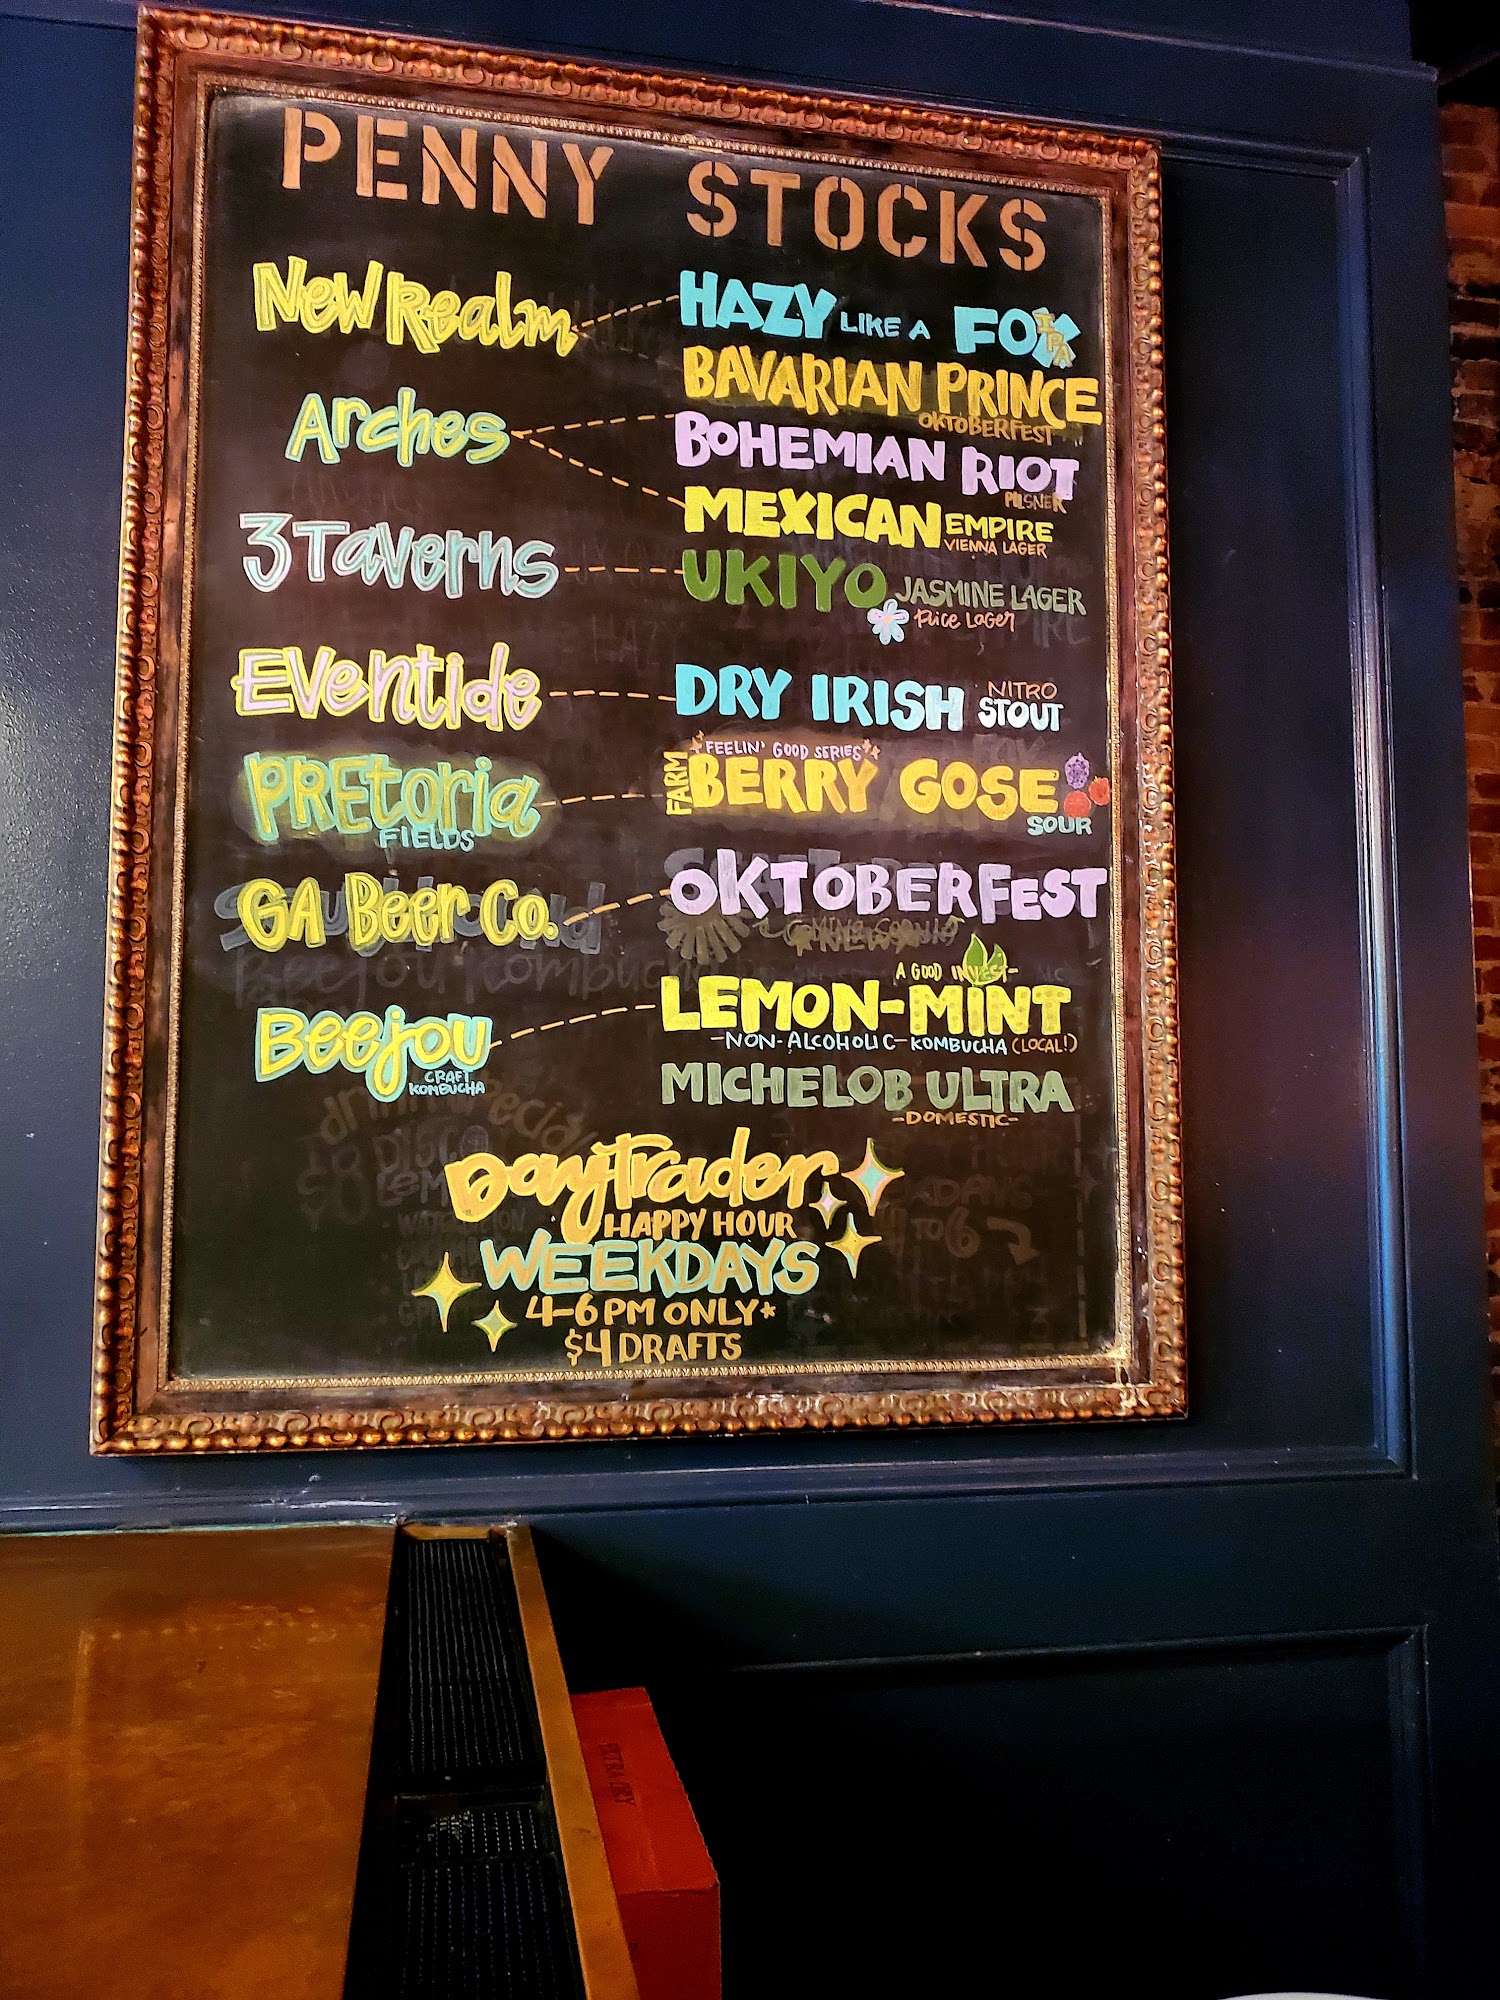 PENNY STOCKS
New Realm
HAZY LIKE A FOX
IPA
BAVARIAN PRINCE
OKTOBERFEST
Arches
BOHEMIAN RIOT
PILSNER
MEXICAN EMPIRE
VIENNA LAGER
3 Taverns
UKIYO JASMINE LAGER
Rice LAGER
Eventide
DRY IRISH NITRO STOUT
PREtoria
FIELDS
FEELIN' GOOD SERIES
FARM BERRY GOSE
SOUR
GA Beer Co.
OKTOBERFEST
A GOOD INVEST-
Beejou
CRAFT
KOMBUCHA
LEMON-MINT
-NON-ALCOHOLIC- KOMBUCHA (LOCAL!)
MICHELOB ULTRA
-DOMESTIC-
DayTrader
HAPPY HOUR
WEEKDAYS
4-6 PM ONLY*
$4 DRAFTS
EXTRA DRY